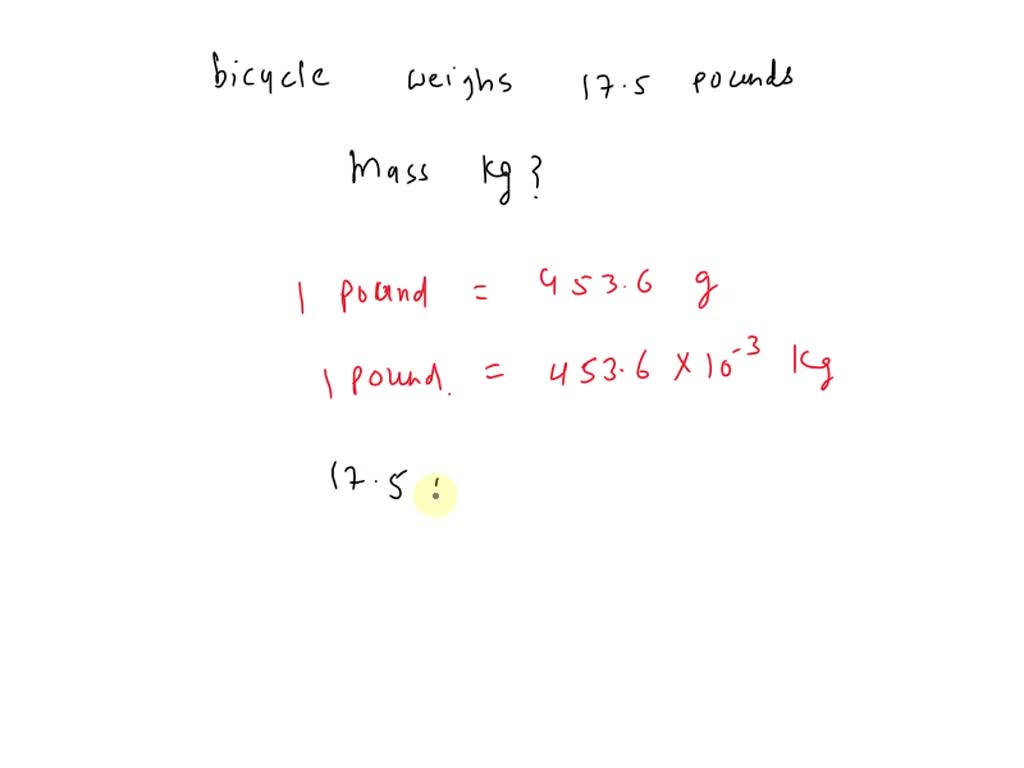 bicycle weighs 17.5 pounds
Mass kg?
1 pound = 453.6 g
1 pound. = 453.6 × 10⁻³ kg
17.5